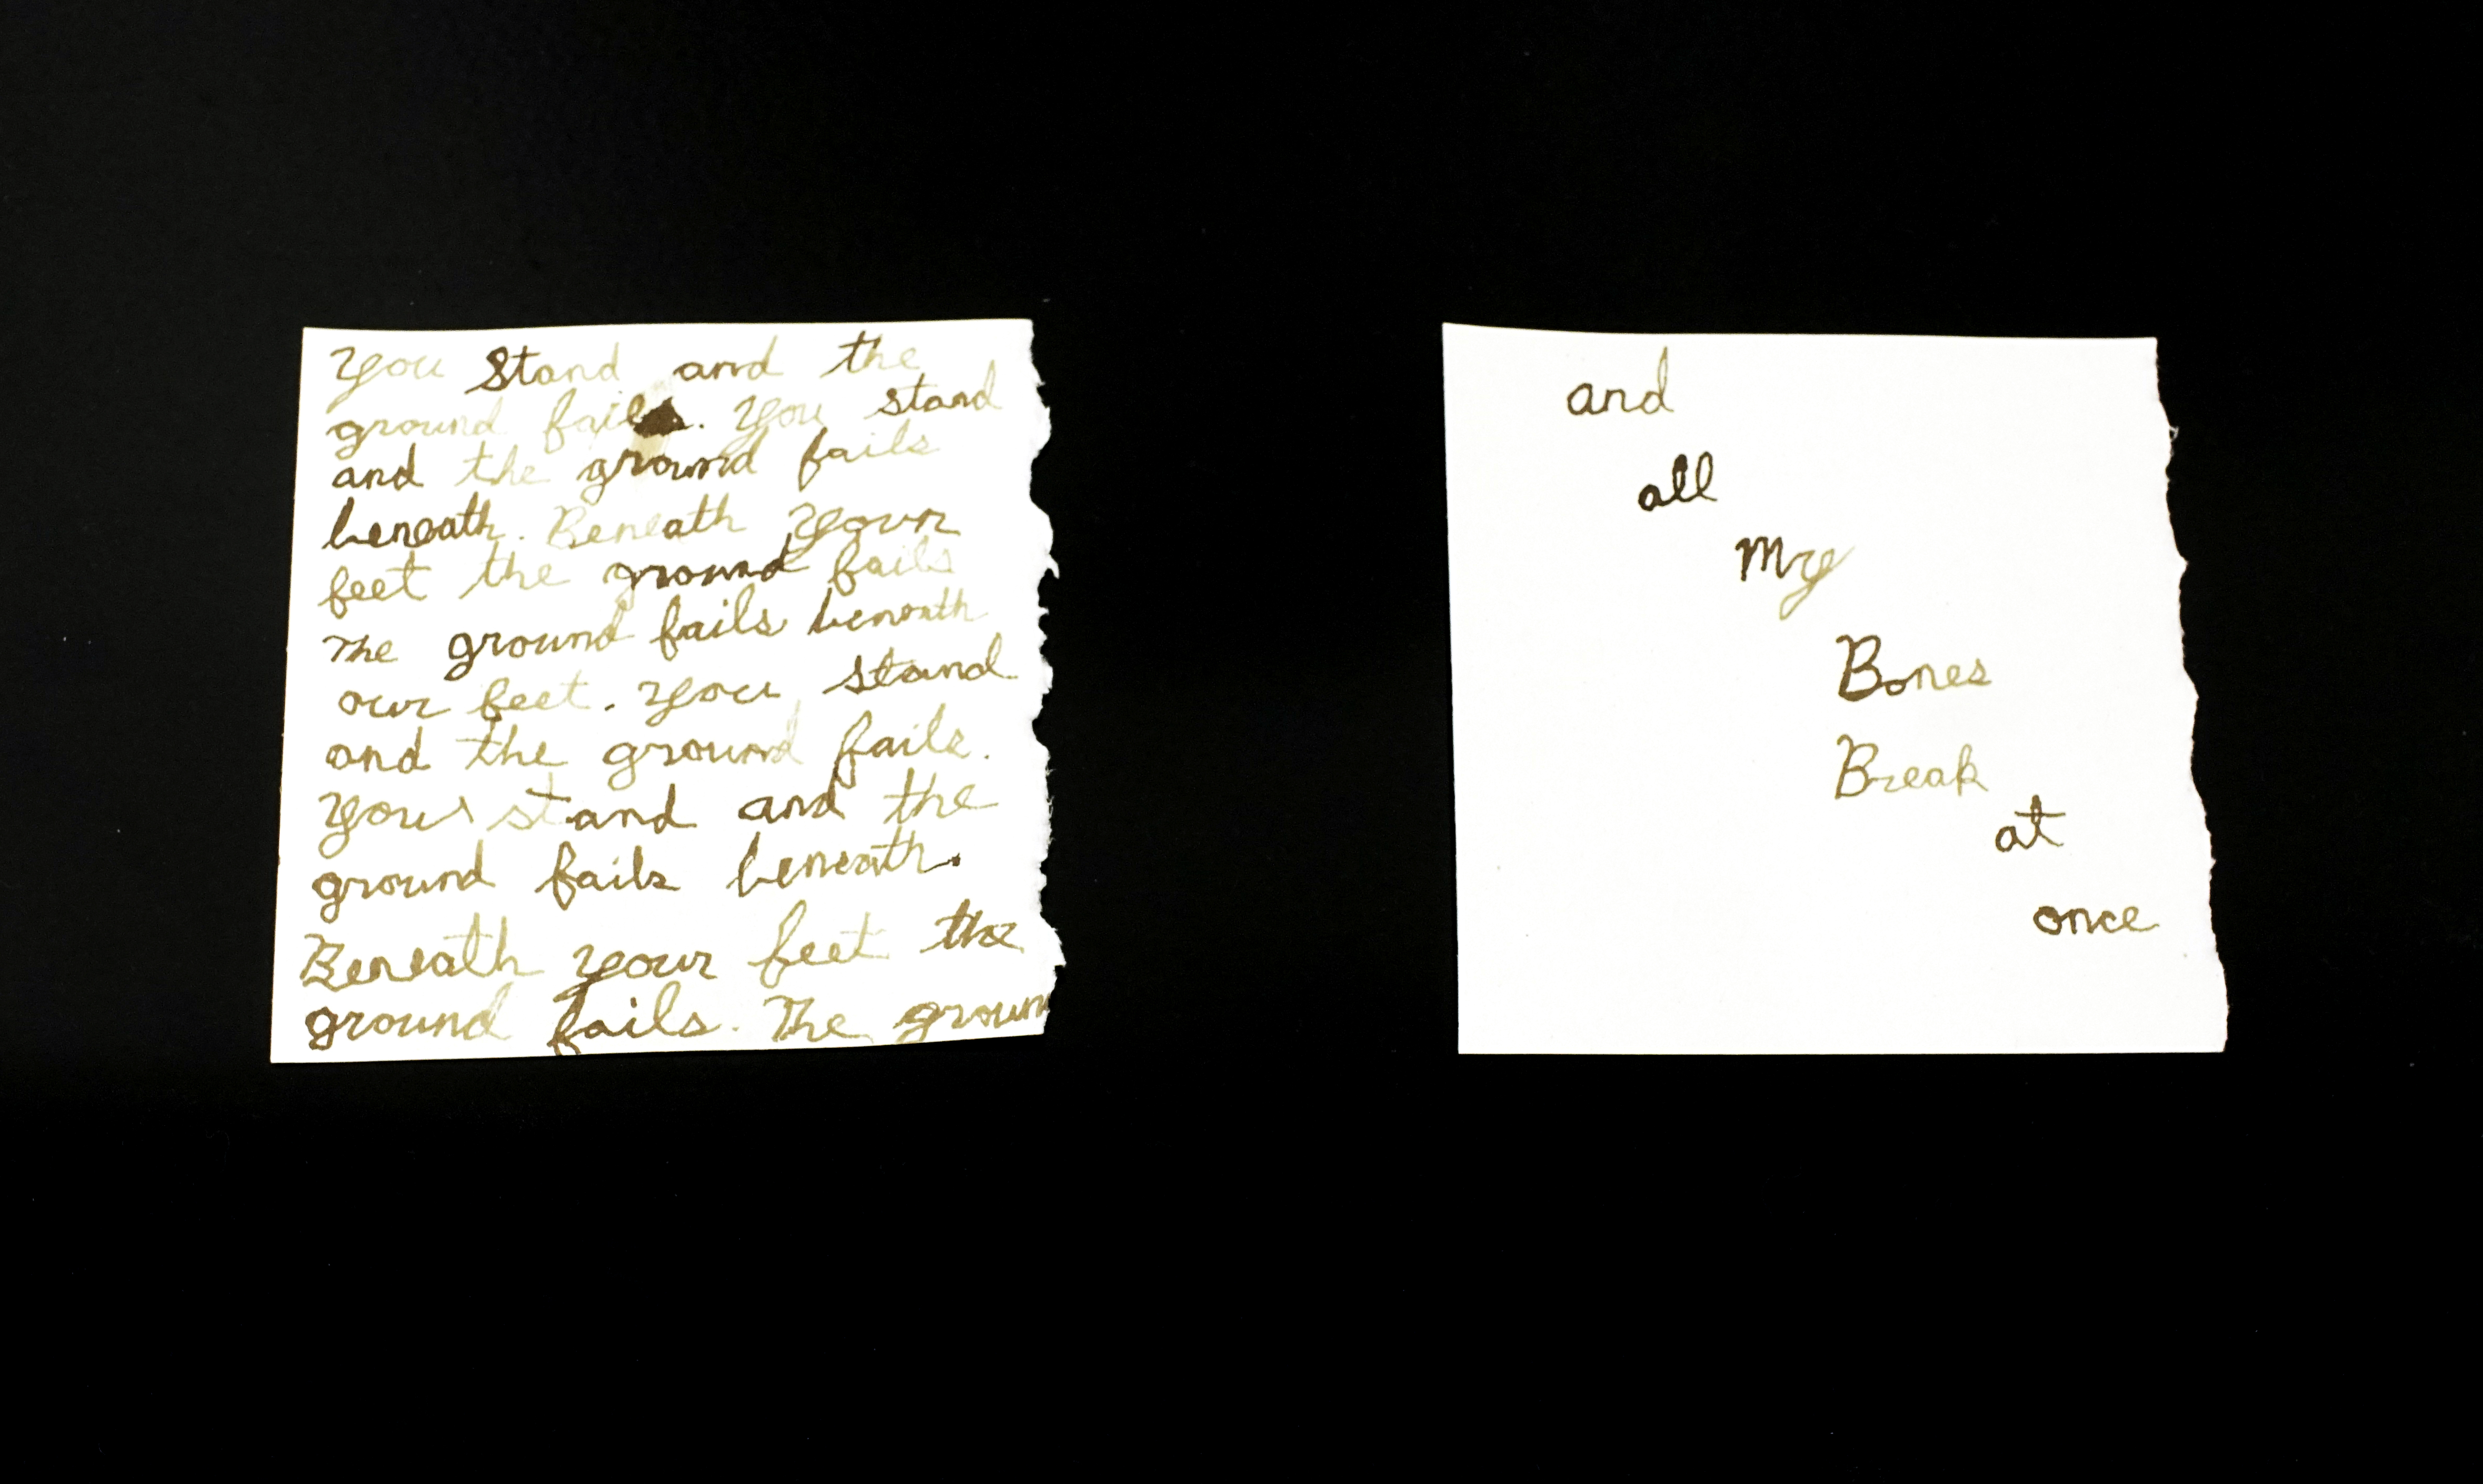 You stand and the
ground fails. You stand
and the ground fails
beneath. Beneath your
feet the ground fails
The ground fails beneath
our feet. You stand
and the ground fails.
You stand and the
ground fails beneath.
Beneath your feet the
ground fails. The groun
and
all
My
Bones
Break
at
once